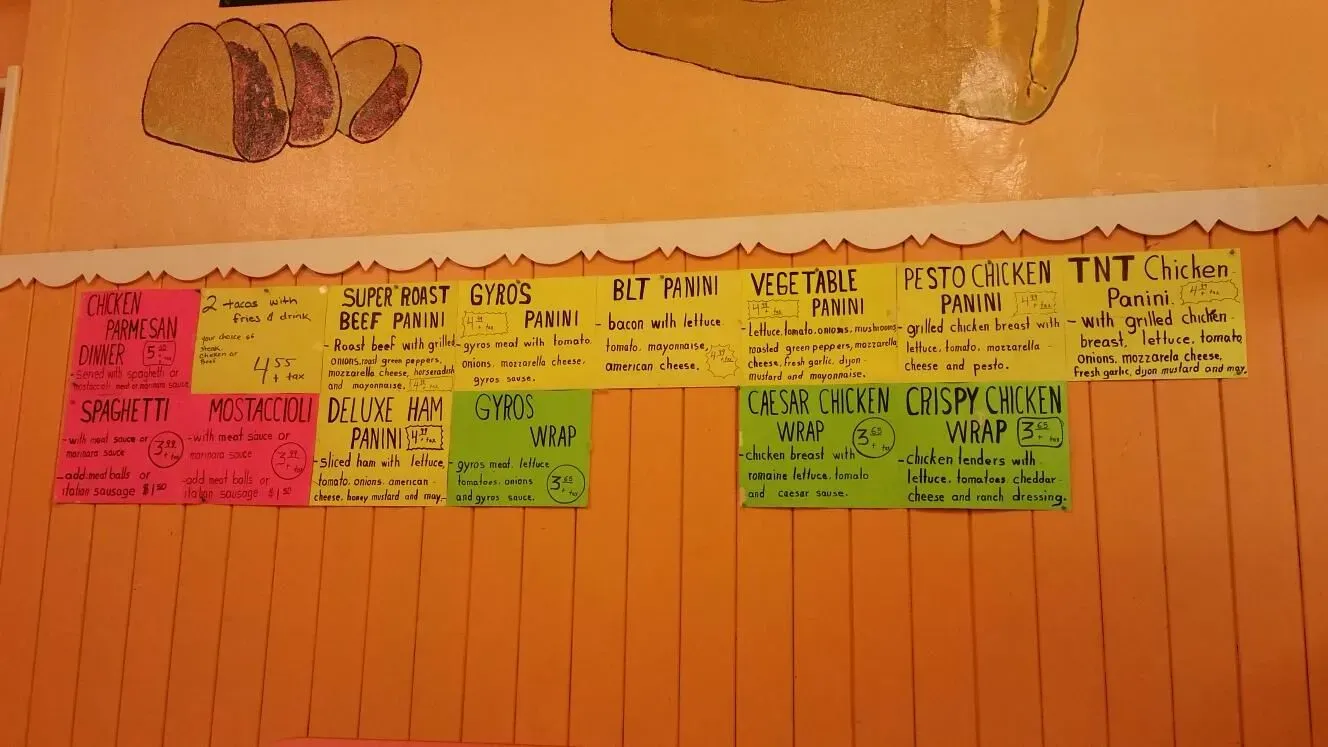 CHICKEN
PARMESAN
DINNER
- Served with spaghetti or
mostaccoli meat or marinara sauce
2 tacos with
fries & drink
your choice of
steak
Chicken or
Beef
4.55
+ tax
SUPER ROAST
BEEF PANINI
- Roast beef with grilled
onions, roast green peppers,
mozzarella cheese, horseradish
and mayonnaise.
4.99
+ tax
GYROS
4.99
+ tax
PANINI
gyros meat with tomato.
onions, mozzarella cheese,
gyros sause.
BLT PANINI
- bacon with lettuce.
tomato, mayonnaise,
american cheese.
4.99
+ tax
VEGETABLE
4.99
+ tax
PANINI
- Lettuce, tomato, onions, mushrooms
roasted green peppers, mozzarella
cheese, fresh garlic, dijon-
mustard and mayonnaise.
PESTO CHICKEN
PANINI
4.99
+ tax
- grilled chicken breast with
lettuce, tomato, mozzarella
cheese and pesto.
TNT Chicken
Panini.
4.99
+ tax
- with grilled chicken-
breast, lettuce, tomato,
onions, mozzarela cheese,
fresh garlic, dijon mustard and may.
SPAGHETTI
- with meat sauce or
marinara sauce
3.99
+ tax
- add meat balls or
italian sausage $1.50
MOSTACCIOLI
- with meat sauce or
marinara sauce
3.99
+ tax
- add meat balls or
italian sausage $1.50
DELUXE HAM
PANINI
4.99
+ tax
- Sliced ham with lettuce,
tomato, onions, american-
cheese, honey mustard and may.
GYROS
WRAP
- gyros meat, lettuce
tomatoes, onions
and gyros sauce.
3.65
+ tax
CAESAR CHICKEN
WRAP
3.65
+ tax
- chicken breast with
romaine lettuce, tomato
and caesar sause.
CRISPY CHICKEN
WRAP
3.65
+ tax
- chicken tenders with-
lettuce, tomatoes, cheddar-
cheese and ranch dressing.